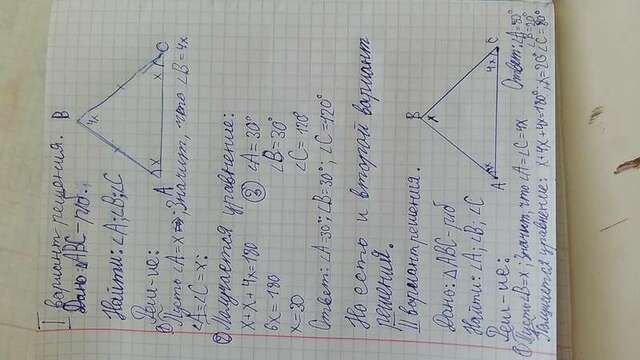 I вариант решения.
Дано: △ABC - р/б.
B
4x
Найти: ∠A; ∠B; ∠C
Реш-ие:
A x x C
① Пусть ∠A = x ; Значит, что ∠B = 4x
∠A = ∠C = x;
② Получается уравнение:
x + x + 4x = 180 ③ ∠A = 30°
6x = 180 ∠B = 30°
x = 30 ∠C = 120°
Ответ: ∠A = 30°; ∠B = 30°; ∠C = 120°
Но есть и второй вариант
решений.
II вариант решения.
B
x
Дано: △ABC - р/б
Найти: ∠A; ∠B; ∠C
Реш-ие:
A 4x 4x C
① Пусть ∠B = x ; Значит, что ∠A = ∠C = 4x
Ответ: ∠A = 80°
∠B = 20°
Получается уравнение: x + 4x + 4x = 180°; x = 20° ∠C = 80°